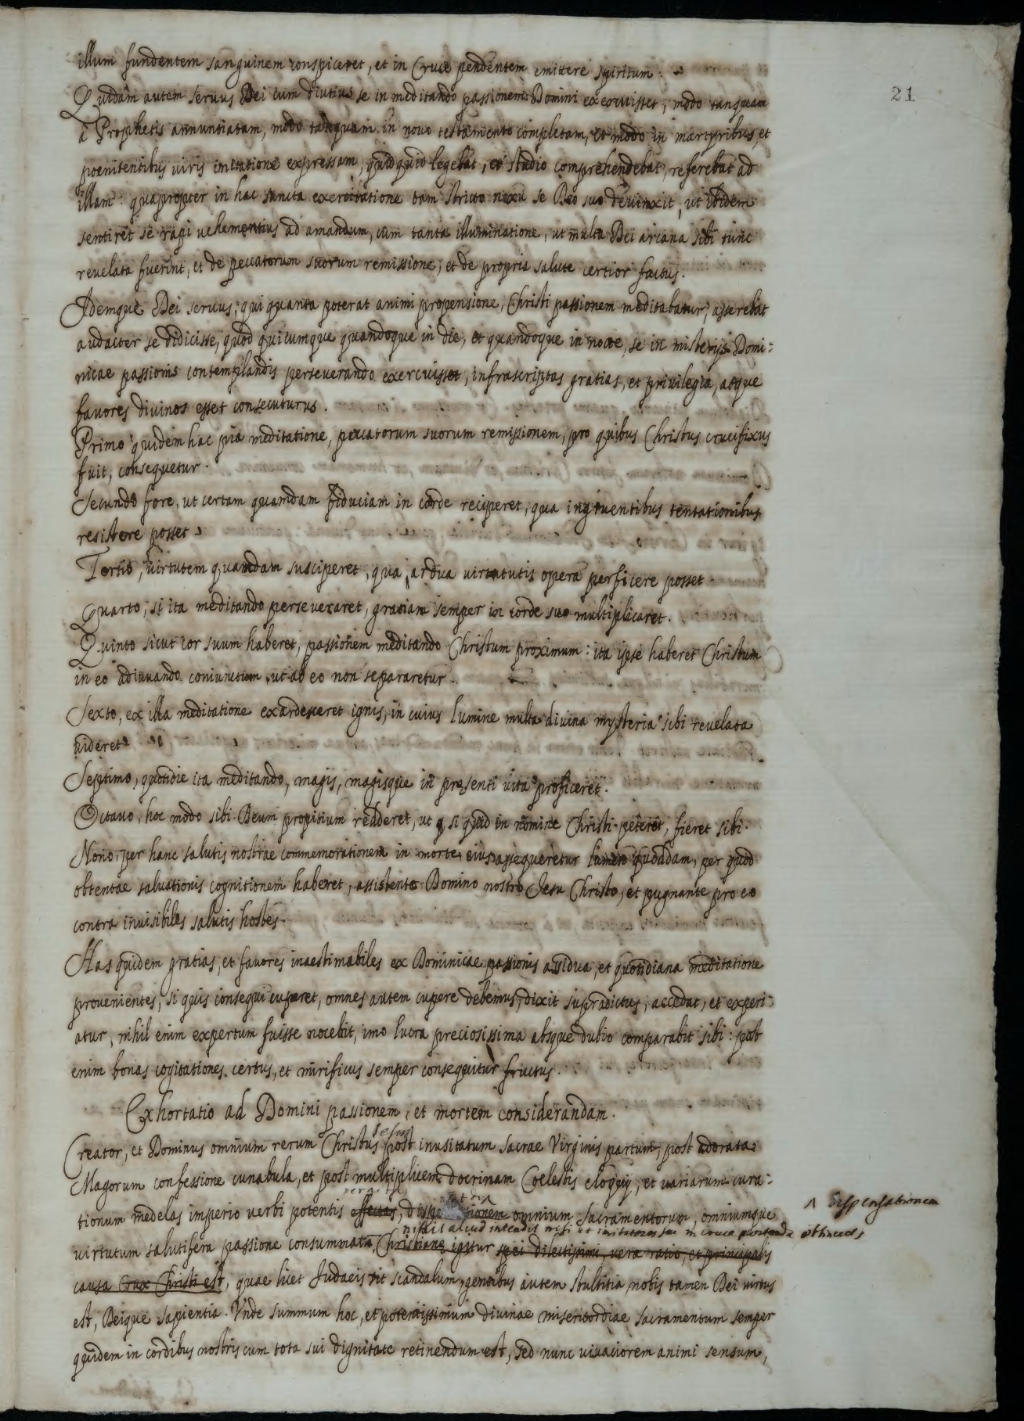 21
illum fundentem sanguinem conspiceret, et in Cruce pendentem emittere spiritum.
Quidam autem seruus Dei cum diutius se in meditando passionem Domini exercuisset, modo tanquam
a Prophetis annuntiatam, modo tanquam in nouo testamento completam, et modo in martyribus, et
poenitentibus uiris imitatione expressam, quidquid legebat, et studio comprehendebat, referebat ad
illam: quapropter in hac sancta exercitatione tam stricto nexu se Deo suo deuinxit, ut ibidem
sentiret se rapi uehementius ad amandum, cum tanta illuminatione, ut multa Dei arcana sibi tunc
reuelata fuerint, et de peccatorum suorum remissione, et de propria salute certior factus.
Idemque Dei seruus, qui quanta poterat animi propensione, Christi passionem meditabatur, asserebat
audacter se didicisse, quod quicumque quandoque in die, et quandoque in nocte, se in misterijs Domi:
nicae passionis contemplandis perseuerando exercuisset, infrascriptas gratias, et priuilegia, atque
fauores diuinos esset consecuturus.
Primo quidem hac pia meditatione, peccatorum suorum remissionem, pro quibus Christus crucifixus
fuit, consequetur.
Secundo fore, ut certam quamdam fiduciam in corde reciperet, qua ingruentibus tentationibus
resistere posset
Tertio, uirtutem quamdam susciperet, qua ardua uirtutis opera perficere posset.
Quarto, si ita meditando perseueraret, gratiam semper in corde suo multiplicaret.
Quinto sicut cor suum haberet, passionem meditando Christum proximum: ita ipse haberet Christum
in eo adiuuando coniunctum, ut ab eo non separaretur.
Sexto, ex illa meditatione exardesceret ignis, in cuius lumine multa diuina mysteria sibi reuelata
uideret
Septimo, quotidie ita meditando, magis, magisque in presenti uita proficeret.
Octauo, hoc modo sibi Deum propitium redderet, ut si quid in nomine Christi peteret, fieret sibi.
Nono, per hanc salutis nostrae commemorationem in morte eius assequeretur lumen quoddam, per quod
obtentae saluationis cognitionem haberet, assistente Domino nostro Iesu Christo, et pugnante pro eo
contra inuisibiles salutis hostes.
Has quidem gratias, et fauores inaestimabiles ex Dominicae passionis assidua, et quotidiana meditatione
prouenientes, si quis consequi cuperet, omnes autem cupere debemus, dixit supradictus, accedat, et experi:
atur, nihil enim expertum fuisse nocebit, imo lucra preciosissima absque dubio comparabit sibi: post
enim bonas cogitationes certus, et mirificus semper consequitur fructus.
Exhortatio ad Domini passionem, et mortem considerandam.
Creator, et Dominus omnium rerum Christus post inusitatum Sacrae Virginis partum, post adorata
Magorum confessione cunabula, et post multiplicem doctrinam Coelestis eloquij, et uariarum cura:
tionum medelas imperio uerbi potentis effectas, omnium Sacramentorum, omniumque ^ dispensationem
nihil aliud intendit nisi ut imitatores sui in cruce
uirtutum salutifera passione consummata, Christiane igitur spei dilectissimi, uera ratio, et principalis
causa Crux Christi est, quae licet Iudaeis sit scandalum, gentibus autem stultitia nobis tamen Dei uirtus
est, Deique sapientia. Unde summum hoc, et potentissimum diuinae misericordiae sacramentum semper
quidem in cordibus nostris cum tota sui dignitate retinendum est, sed nunc uiuaciorem animi sensum,